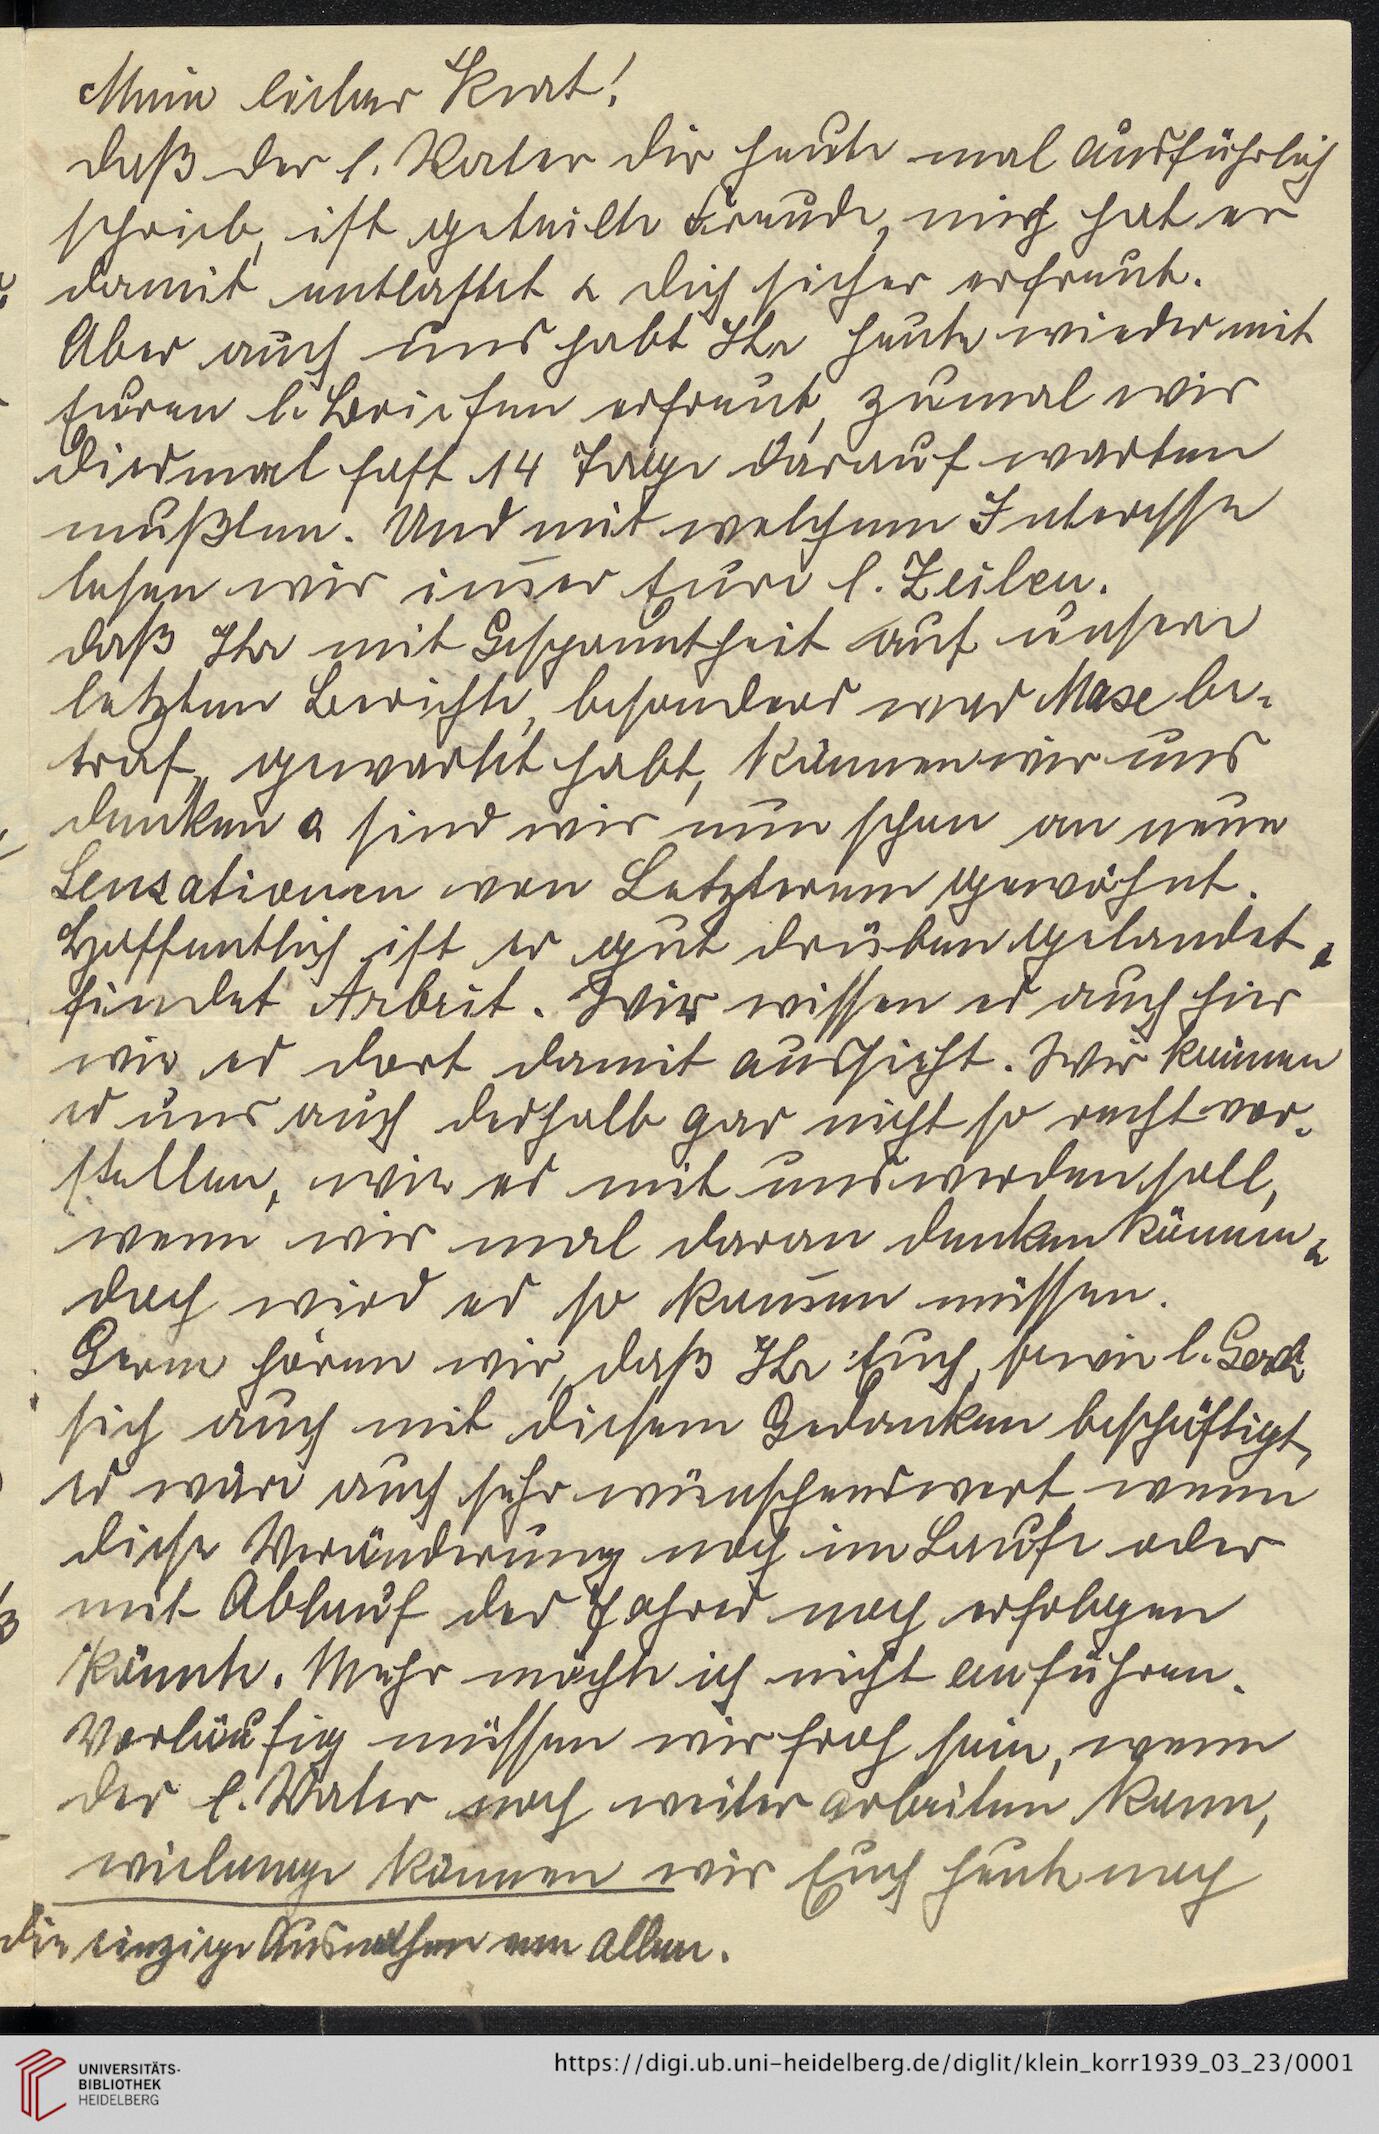 Mein lieber Kurt!
Daß der l. Vater dir heute mal ausführlich
schrieb, ist geteilte Freude, mich hat er
damit entlastet & dich sicher erfreut.
Aber auch uns habt Ihr heute wieder mit
Euren l. Briefen erfreut, zumal wir
diesmal fast 14 Tage darauf warten
mußten. Und mit welchem Interesse
lesen wir im̅er Eure l. Zeilen.
Daß Ihr mit Gespanntheit auf unsere
letzten Berichte, besonders was Maxe be-
traf, gewartet habt, können wir uns
denken & sind wir nun schon an neue
Sensationen von Letzterem gewöhnt.
Hoffentlich ist er gut drüben gelandet &
findet Arbeit. Wir wissen es auch hier
wie es dort damit aussieht. Wir können
es uns auch deshalb gar nicht so recht vor-
stellen, wie es mit uns werden soll,
wenn wir mal daran denken können &
doch wird es so kom̅en müssen.
Gerne hören wir, daß Ihr Euch, sowie l. Gerd
sich auch mit diesem Gedanken beschäftigt,
es wäre auch sehr wünschenswert, wenn
diese Veränderung noch im Laufe oder
mit Ablauf des Jahres noch erfolgen
könnte. Mehr möchte ich nicht anführen.
Vorläufig müssen wir froh sein, wenn
der l. Vater noch weiter arbeiten kann,
wielange können wir Euch heute noch
die einzige Ausnahme von allen.
UNIVERSITÄTS-
BIBLIOTHEK
HEIDELBERG
https://digi.ub.uni-heidelberg.de/diglit/klein_korr1939_03_23/0001